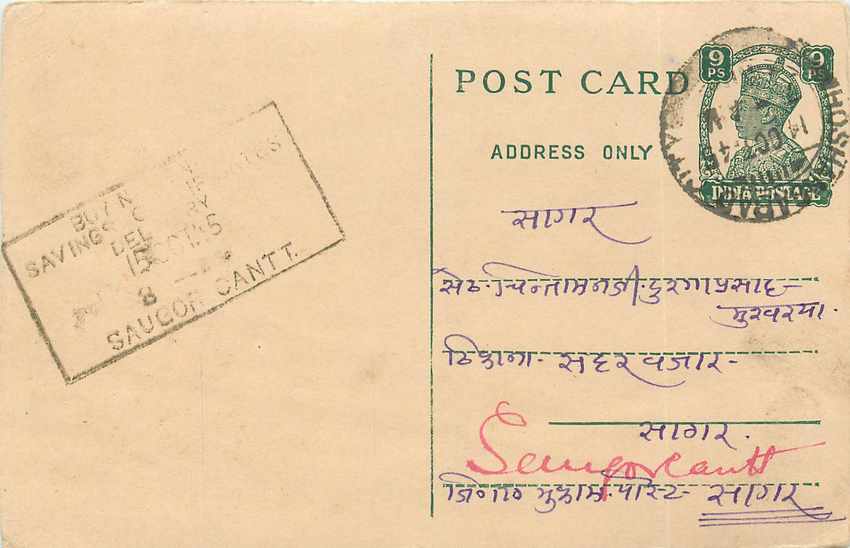 POST CARD
ADDRESS ONLY
9 PS 9 PS
INDIA POSTAGE
14 OCT 45
BUY N
SAVINGS
DEL
15 OCT 45
8
SAUGOR CANTT.
सागर
सेठ चिन्तामनजी दुरगाप्रसाद
मुखरया.
ठिकाना- सदर वजार-
सागर.
Saugor Cantt
मुकाम. पोस्ट- सागर